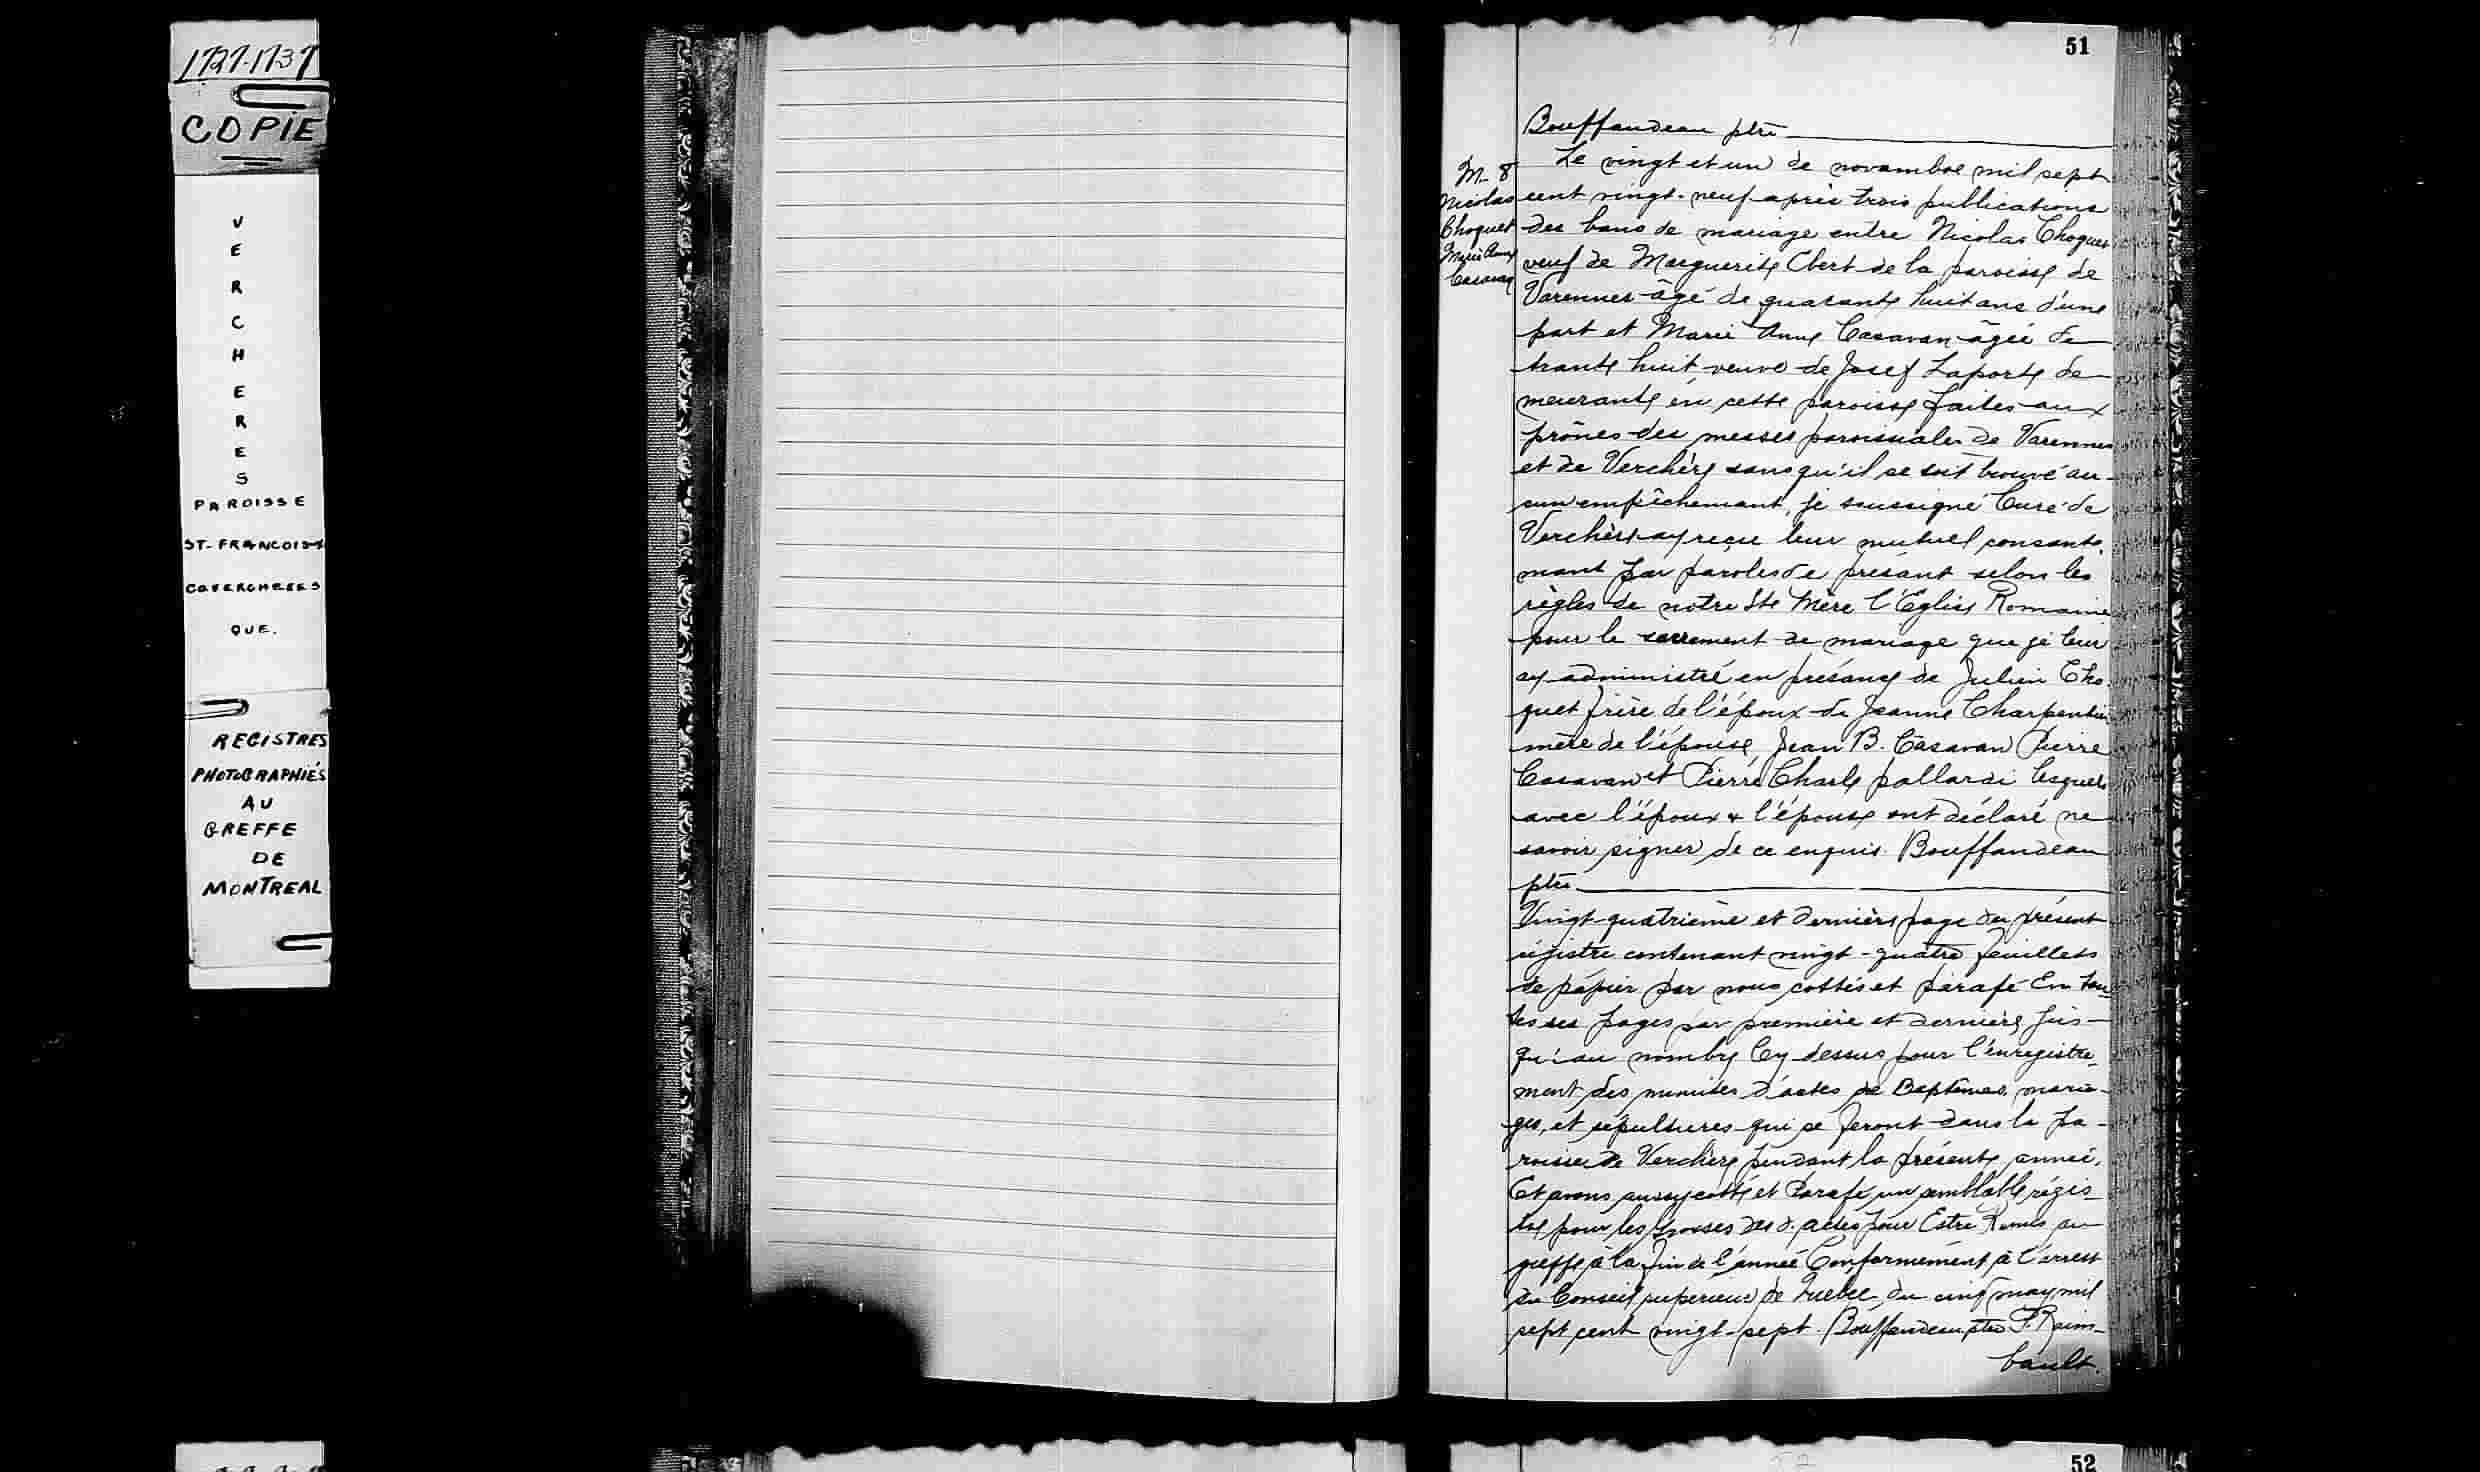 1727-1737
COPIE
V
E
R
C
H
E
R
E
S
PAROISSE
ST-FRANCOIS-X
QUE.
REGISTRES
PHOTOGRAPHIÉS
AU
GREFFE
DE
MONTREAL
51
Bouffandeau ptre
M-8
Nicolas
Choquet
Marie Anne
Casavan
Le vingt et un de novambre mil sept
cent vingt-neuf après trois publications
des bans de mariage entre Nicolas Choquet
veuf de Marguerite Ebert de la paroisse de
Varennes âgé de quarante huit ans d'une
part et Marie Anne Casavan âgée de
trante huit veuve de Josef Laporte de
meurante en cette paroisse faites aux
prônes des messes paroissiales de Varennes
et de Verchère sans qu'il se soit trouvé au-
cun empêchemant, je soussigné Curé de
Verchère ay reçu leur mutuel consante-
mant par paroles de présant selon les
règles de notre Ste Mère l'Eglise Romaine
pour le sacrement de mariage que je leur
ay administré en présance de Julien Cho-
quet frère de l'époux de Jeanne Charpentier
mère de l'épouse, Jean B. Casavan Pierre
Casavan et Pierre Charle pallardi lesquels
avec l'époux & l'épouse ont déclaré ne
savoir signer de ce enquis. Bouffandeau
ptre
Vingt-quatrième et dernière page du présent
régistre contenant vingt-quatre feuillets
de papier par nous cottés et parafé En tou-
tes ses pages par première et dernière jus-
qu'au nombre Cy dessus pour l'enregistre-
ment des minutes d'actes de Baptêmes, maria-
ges, et sépultures qui se feront dans la pa-
roisse de Verchère pendant la présente année.
Et avons aussy cotté et Parafé un semblable régis-
tre pour les Grosses des d. actes pour Estre Remis au
greffe à la fin de l'année Conformément à l'arrest
du Conseil superieur de Quebec du cinq may mil
sept cent vingt-sept. Bouffandeau ptre P. Raim-
bault.
52